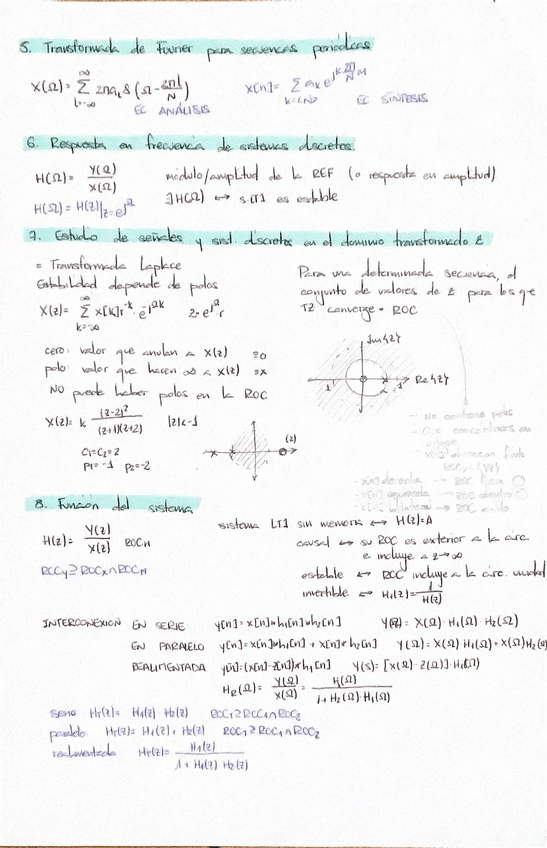 5. Transformada de Fourier para secuencias periódicas
X(Ω) = Σ_{l=-∞}^{∞} 2πa_l δ(Ω - 2πl/N)
EC ANÁLISIS
x[n] = Σ_{k=<N>} a_k e^{jk 2π/N n}
EC SÍNTESIS
6. Respuesta en frecuencia de sistemas discretos.
H(Ω) = Y(Ω)/X(Ω)
módulo/amplitud de la REF (o respuesta en amplitud)
H(Ω) = H(z)|z=e^{jΩ}
∃H(Ω) ↔ s.LTI es estable
7. Estudio de señales y sist. discretos en el dominio transformado Z
= Transformada Laplace
Estabilidad depende de polos
X(z) = Σ_{k=-∞}^{∞} x[k] r^{-k} · e^{-jΩk} z = e^{jΩ} r
Para una determinada secuencia, el
conjunto de valores de z para los que
TZ converge = ROC
cero: valor que anulan a X(z) ≡o
polo: valor que hacen ∞ a X(z) ≡x
NO puede haber polos en la ROC
X(z) = k (z-2)²/((z+1)(z+2)) |z|<-1
C1=C2=2
P1=-1 P2=-2
(2)
Jm{z}
Re{z}
1
- No contiene polos
8. Función del sistema
H(z) = Y(z)/X(z) ROC_H
ROC_Y ⊇ ROC_X ∩ ROC_H
sistema LTI sin memoria ↔ H(z)=A
causal ↔ su ROC es exterior a la circ.
e incluye a z→∞
estable ↔ ROC incluye a la circ. unidad
invertible ↔ H1(z) = 1/H(z)
INTERCONEXIÓN EN SERIE y[n] = x[n]*h1[n]*h2[n] Y(Ω) = X(Ω)·H1(Ω)·H2(Ω)
EN PARALELO y[n] = x[n]*h1[n] + x[n]*h2[n] Y(Ω) = X(Ω) H1(Ω) + X(Ω) H2(Ω)
REALIMENTADA y[n] = (x[n] - z[n])*h1[n] Y(s) = [X(Ω) - Z(Ω)]·H1(Ω)
H_R(Ω) = Y(Ω)/X(Ω) = H(Ω)/(1+H2(Ω)·H1(Ω))
serie H_T(z) = H1(z) H2(z) ROC_T ⊇ ROC1 ∩ ROC2
paralelo H_T(z) = H1(z) + H2(z) ROC_T ⊇ ROC1 ∩ ROC2
realimentada H_T(z) = H1(z)/(1 + H1(z)·H2(z))